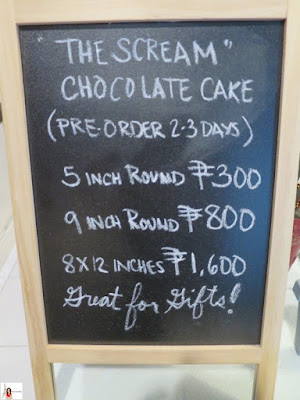 "THE SCREAM"
CHOCOLATE CAKE
(PRE-ORDER 2-3 DAYS)
5 INCH ROUND ₱300
9 INCH ROUND ₱800
8X12 INCHES ₱1,600
Great for Gifts!